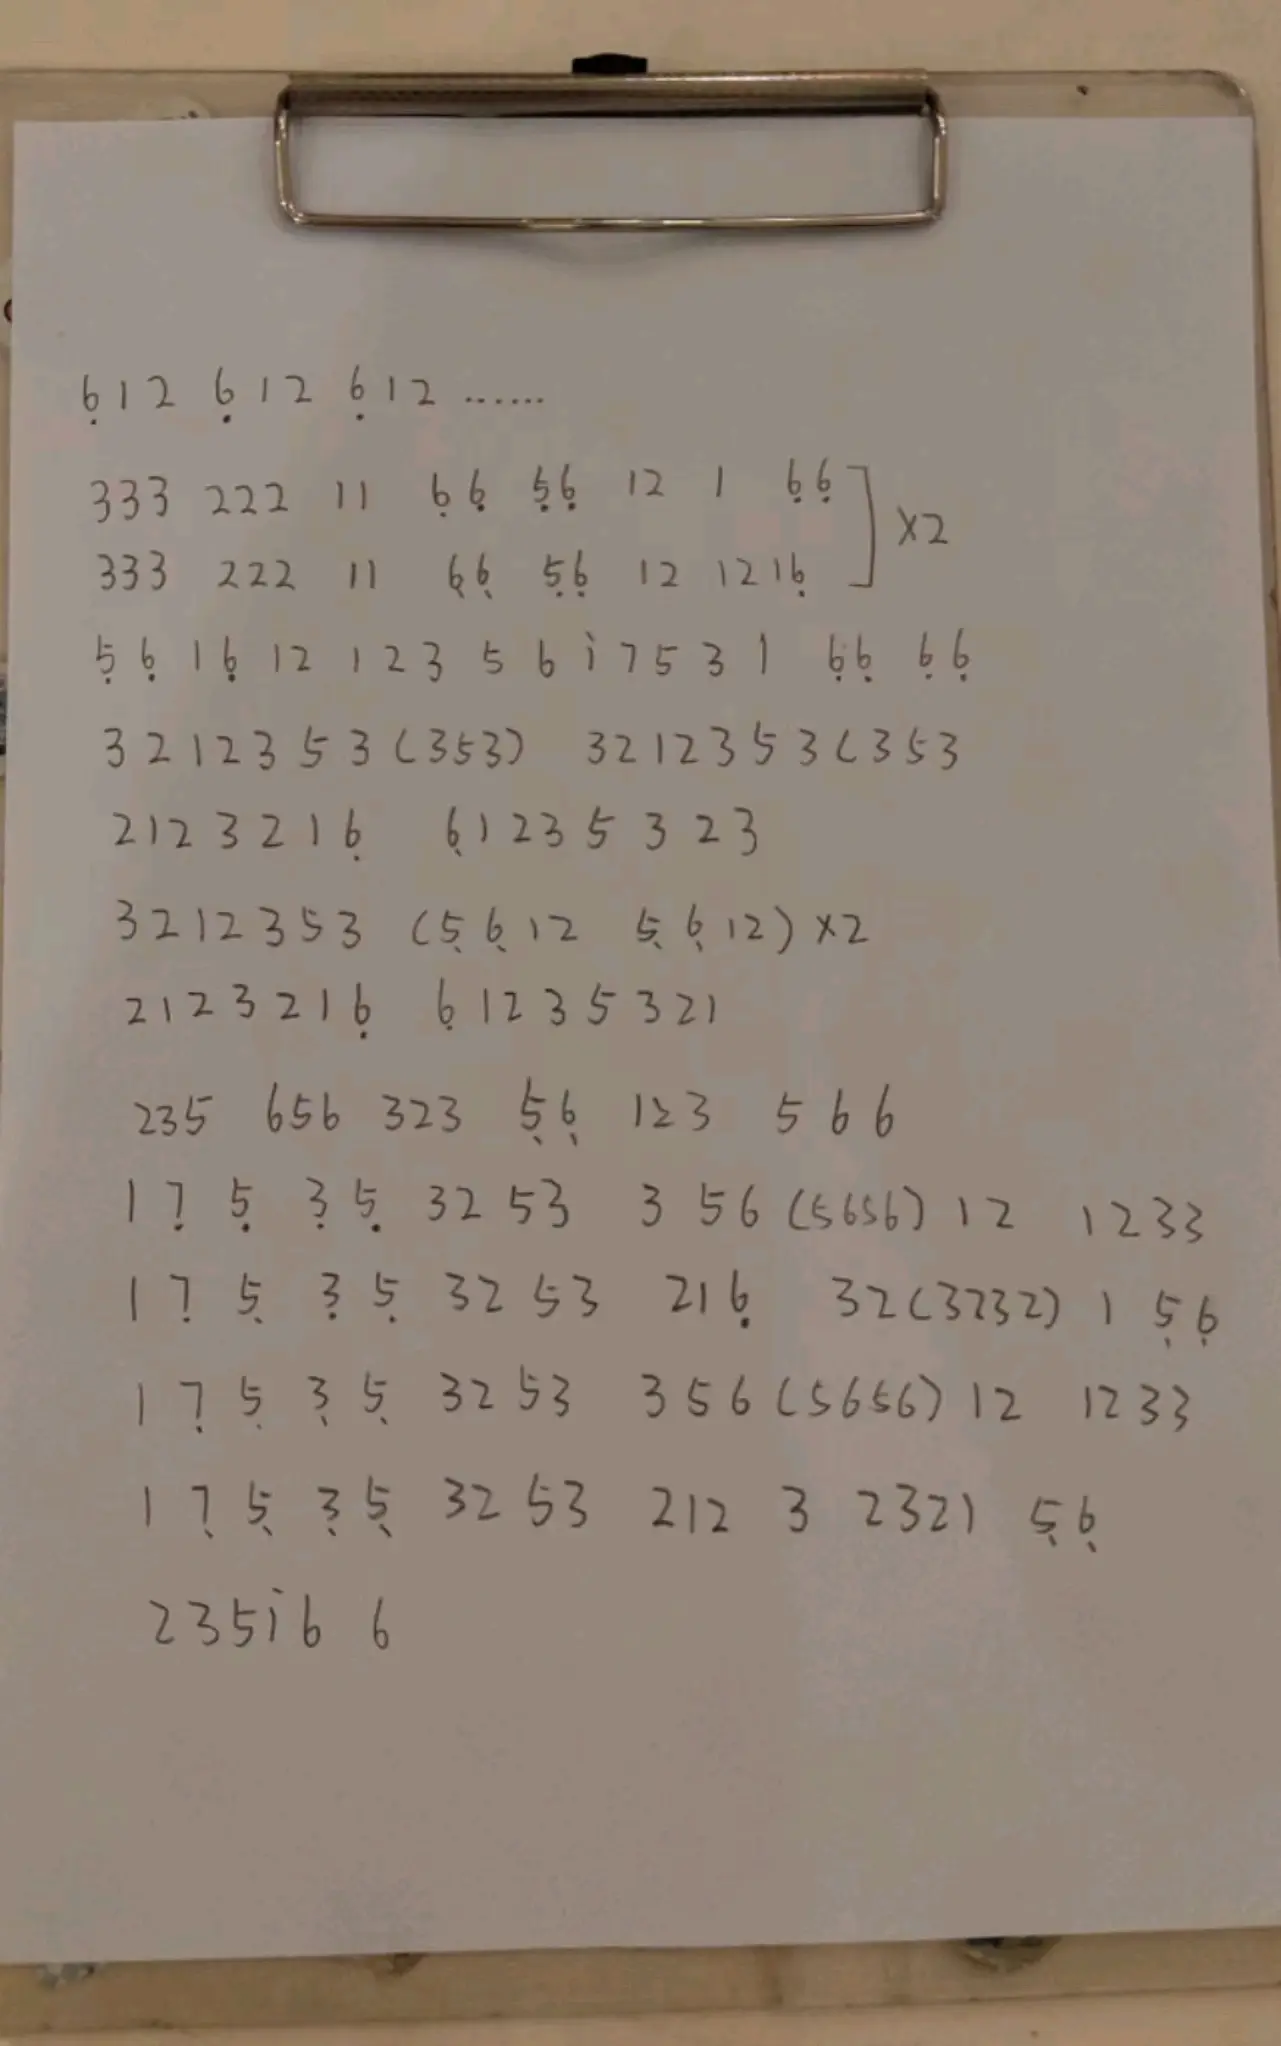 6̣12 6̣12 6̣12 ......
333 222 11 6̣6̣ 5̣6̣ 12 1 6̣6̣ ] ×2
333 222 11 6̣6̣ 5̣6̣ 12 1216̣
5̣ 6̣ 16̣ 12 123 5 6 i 7 5 3 1 6̣6̣ 6̣6̣
3212353(353) 3212353(353
2123216̣ 6̣1235323
3212353 (5̣6̣12 5̣6̣12) ×2
2123216̣ 6̣1235321
235 656 323 5̣6̣ 123 5 6 6
1 7̣ 5̣ 3̣ 5̣ 32 53 3 56 (5656) 12 1233
1 7̣ 5̣ 3̣ 5̣ 32 53 216̣ 32(3232) 1 5̣6̣
1 7̣ 5̣ 3̣ 5̣ 32 53 356(5656) 12 1233
1 7̣ 5̣ 3̣ 5̣ 32 53 212 3 2321 5̣6̣
235i6 6